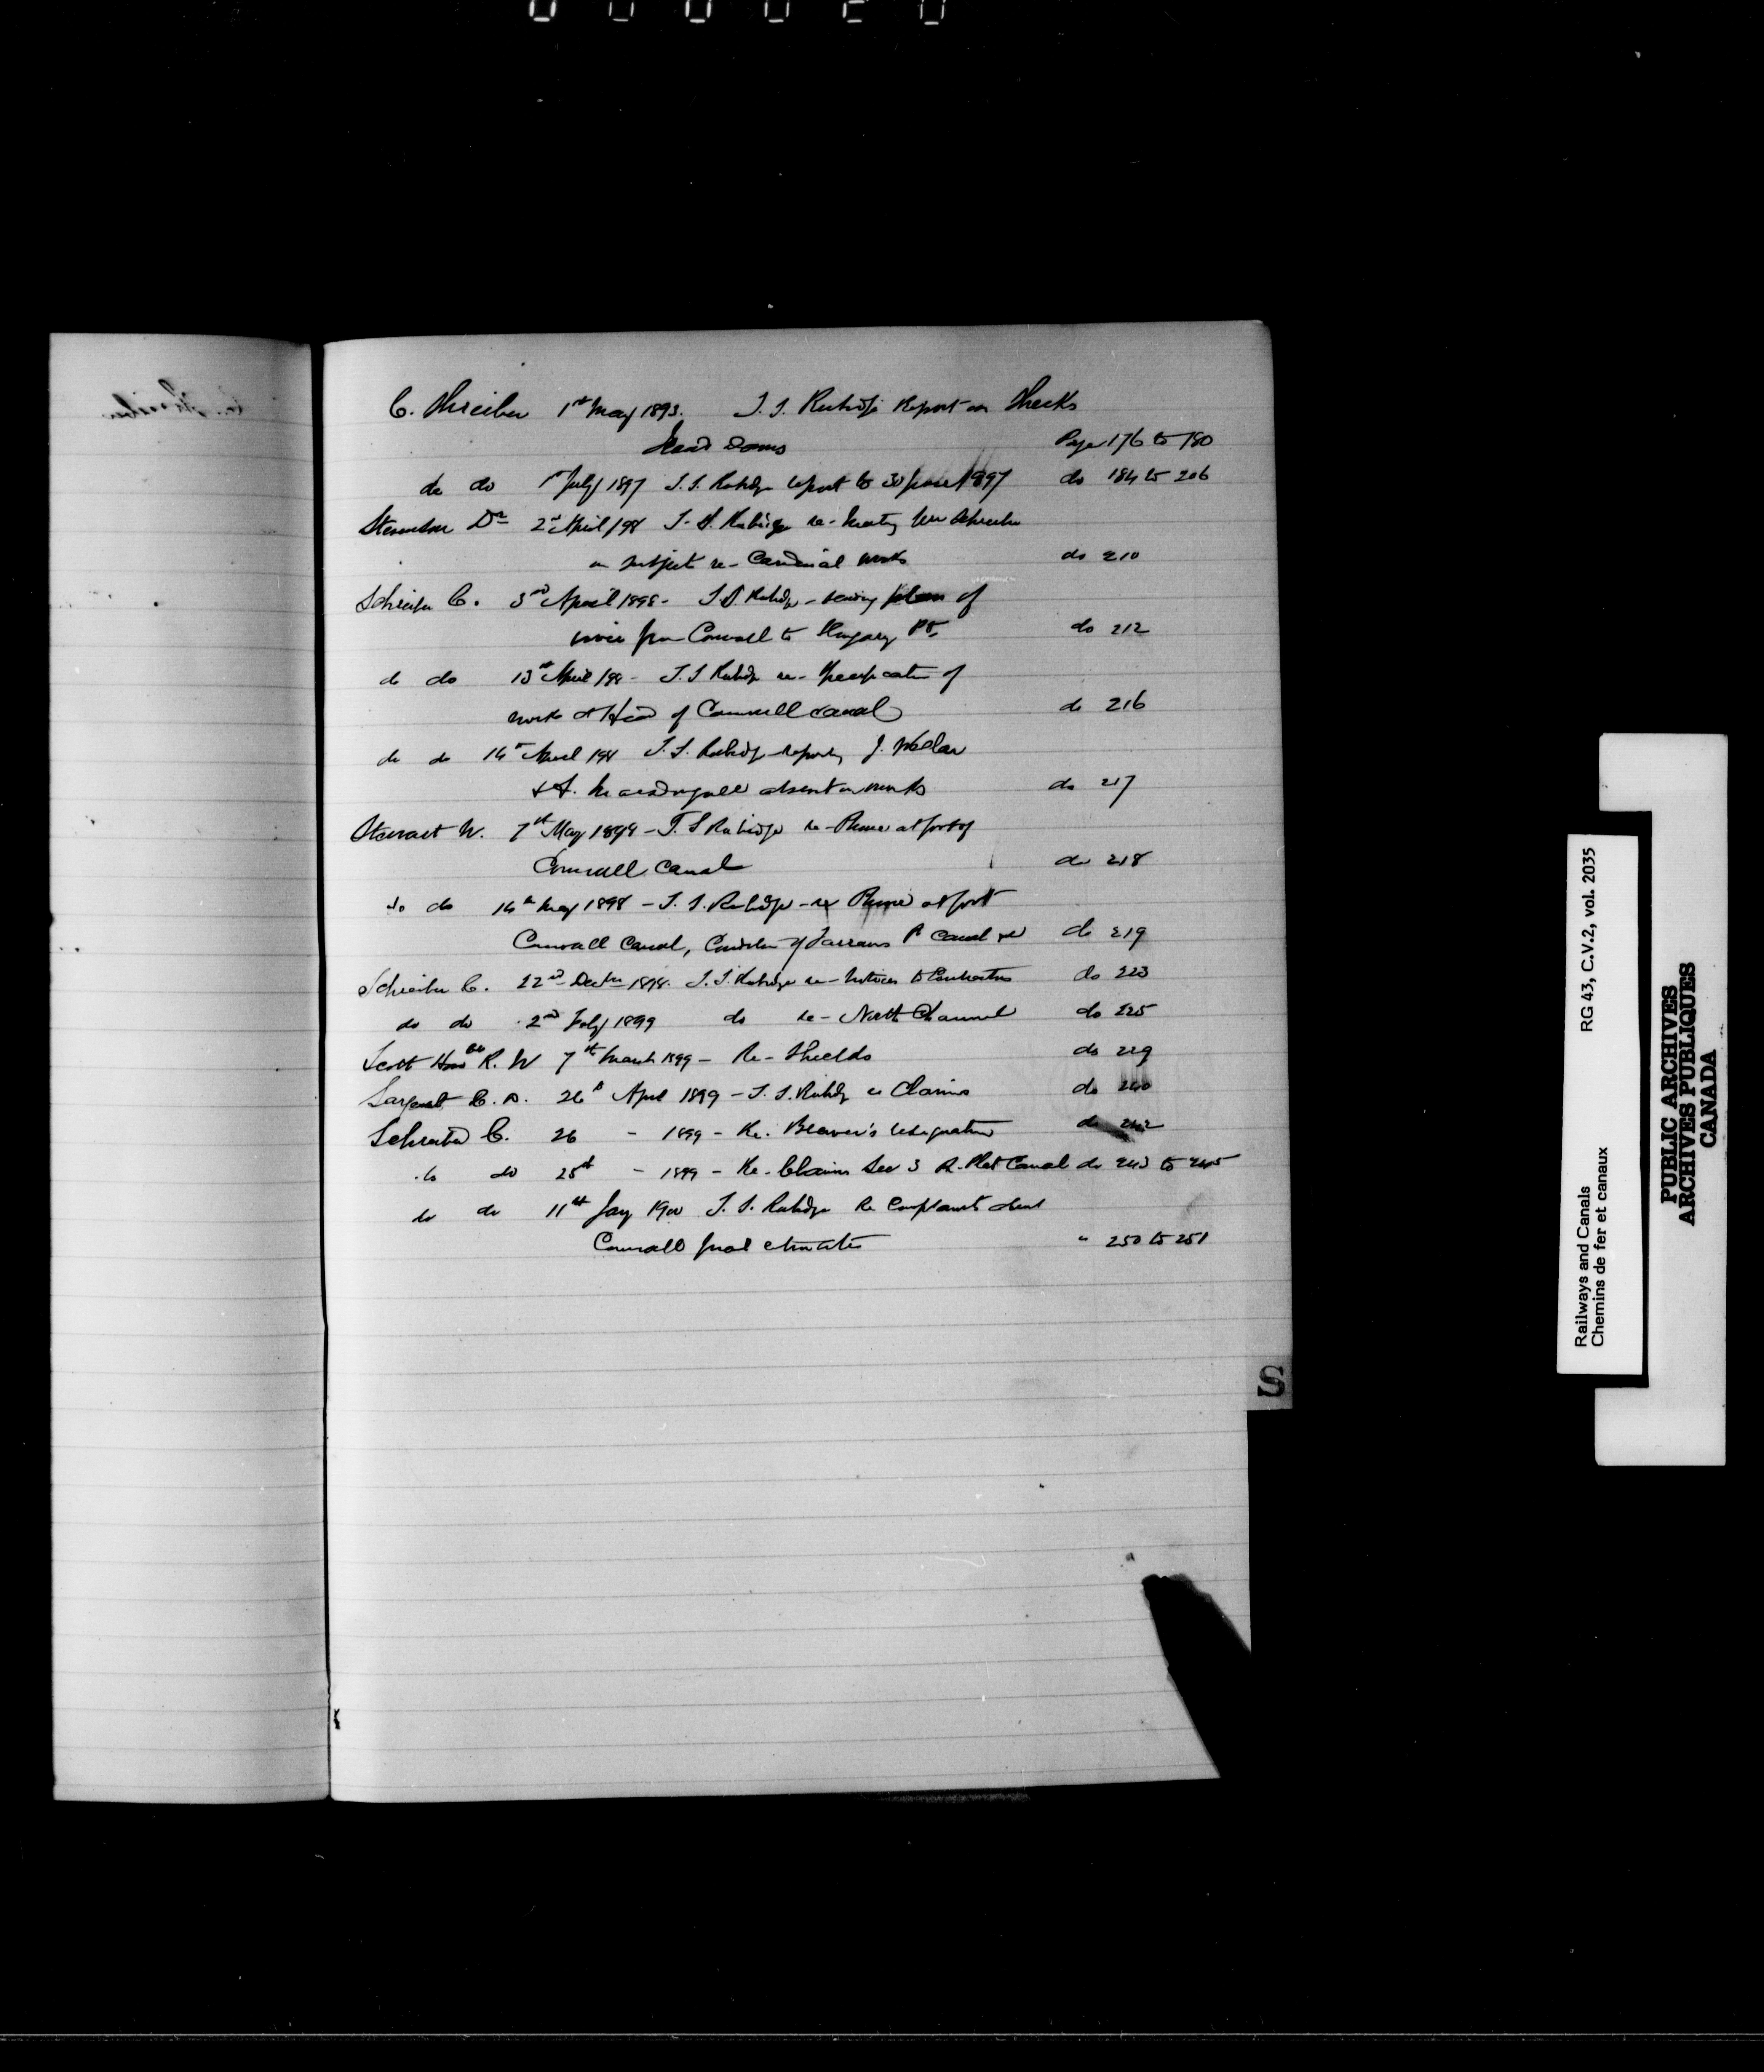 C. Schreiber 1st May 1893. T. S. Rubidge Report on Sheeks
Dams Page 176 to 180
do do 1st July 1897 T. S. Rubidge report to 30 June 1897 do 184 to 206
2nd April /98 T. S. Rubidge re- Meeting Mr Schreiber
on subject re- Cardinal works do 210
Schreiber C. 3rd April 1898 - T. S. Rubidge - plan of
river from Cornwall to Pt. do 212
do do 13th April /98 - T. S. Rubidge re- Specification of
work at Head of Cornwall Canal do 216
do do 14th April /98 T. S. Rubidge reporting J.
& A. absent on works do 217
Stewart W. 7th May 1898 - T. S. Rubidge re- at foot of
Cornwall Canal do 218
do do 14th May 1898 - T. S. Rubidge - re at foot
Cornwall Canal, of Farrans P Canal do 219
Schreiber C. 22nd Decr 1898. T. S. Rubidge re- Notices to Contractors do 223
do do 2nd July 1899 do re- North Channel do 225
Scott Honble R. W 7th March 1899 - Re- Shields do 229
Sargeant C. D. 26th April 1899 - T. S. Rubidge re Claims do 240
Schreiber C. 26 - 1899 - Re. Beaver's resignation do 242
do do 28th - 1899 - Re. Claims Sec 3 R. Plat Canal do 243 to 245
do do 11th Jany 1900 T. S. Rubidge Re Complaints about
Cornwall final estimates " 250 to 251
S
Railways and Canals RG 43, C.V.2, vol. 2035
Chemins de fer et canaux
PUBLIC ARCHIVES
ARCHIVES PUBLIQUES
CANADA